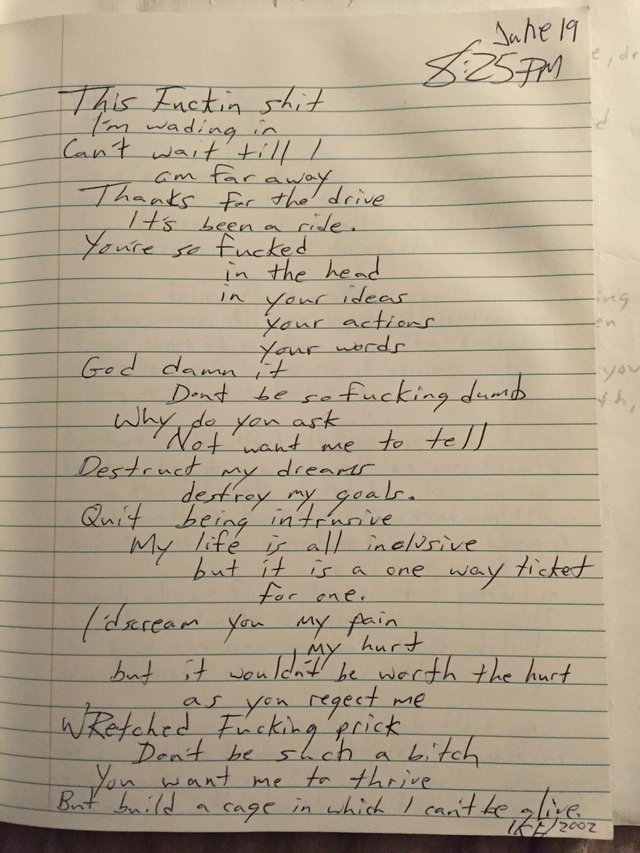 June 19
8:25 PM
This Fuckin shit
I'm wading in
Can't wait till I
am far away
Thanks for the drive
It's been a ride.
You're so fucked
in the head
in your ideas
your actions
your words
God damn it
Dont be so fucking dumb
Why do you ask
Not want me to tell
Destruct my dreams
destroy my goals.
Quit being intrusive
My life is all inclusive
but it is a one way ticket
for one.
I'd scream you my pain
my hurt
but it wouldn't be worth the hurt
as you regect me
WRetched Fucking prick
Don't be such a bitch
You want me to thrive
But build a cage in which I can't be alive.
2002